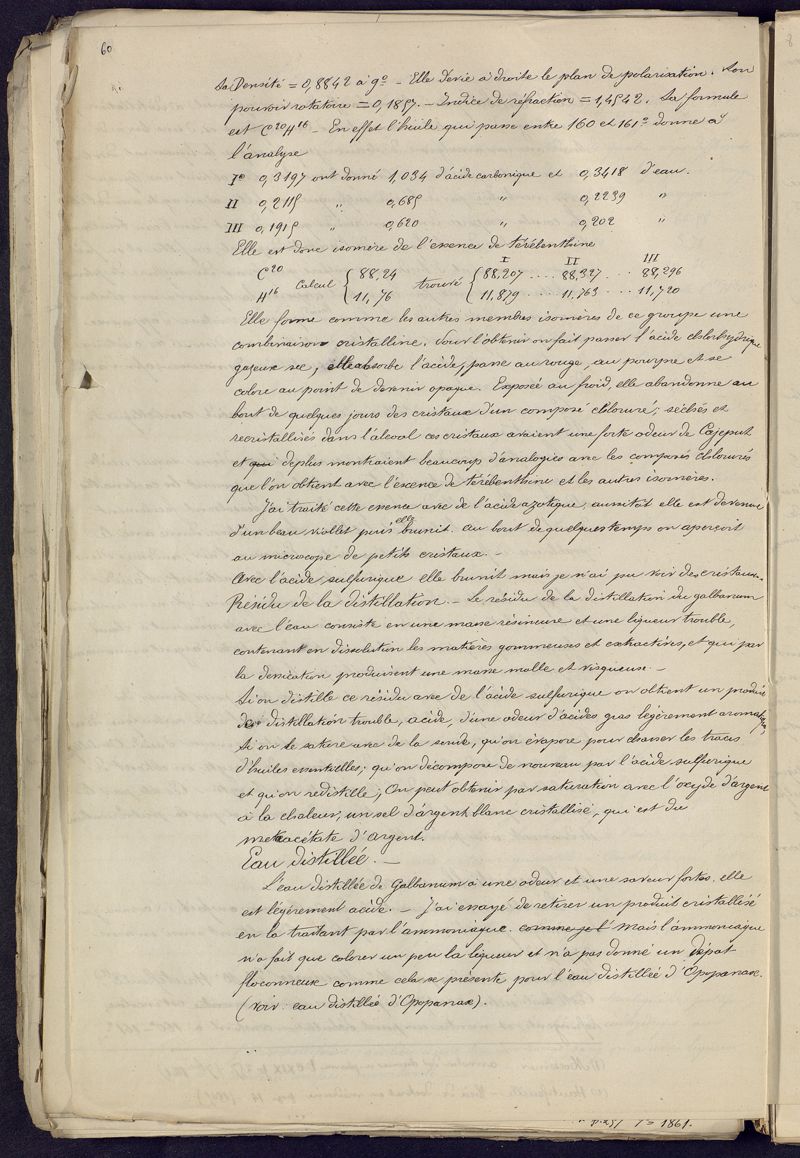 60
Sa Densité = 0,8842 à 9° - Elle dévie à droite le plan de polarisation. Son
pouvoir rotatoire = 0,1857. - Indice de réfraction = 1,4542. Sa formule
est C20H16 - En effet l'huile qui passe entre 160 et 161° donne à
l'analyse
I° 0,3197 ont donné 1,034 d'acide carbonique et 0,3418 d'eau.
II 0,2115 " 0,685 " 0,2239 "
III 0,1915 " 0,620 " 0,202 "
Elle est donc isomère de l'essence de térébenthine
I II III
C20 Calcul { 88,24 trouvé { 88,207 .... 88,327 ... 88,296
H16 11,76 11,879 .... 11,763 ... 11,720
Elle forme comme les autres membres isomères de ce groupe une
combinaison cristalline. Pour l'obtenir on fait passer l'acide chlorhydrique
gazeux sec, elle absorbe l'acide, passe au rouge, au pourpre et se
colore au point de devenir opaque. Exposée au froid, elle abandonne au
bout de quelques jours des cristaux d'un composé chloruré; séchés et
recristallisés dans l'alcool ces cristaux avaient une forte odeur de Cajeput
et qui deplus montraient beaucoup d'analogies avec les composés chlorurés
que l'on obtient avec l'essence de térébenthine et les autres isomères.
J'ai traité cette essence avec de l'acide azotique, aussitôt elle est devenue
d'un beau violet puis elle brunit. au bout de quelques temps on aperçoit
au microscope de petits cristaux. -
Avec l'acide sulfurique elle brunit mais je n'ai pu voir des cristaux.
Résidu de la distillation. - Le résidu de la distillation du galbanum
avec l'eau consiste en une masse résineuse et une liqueur trouble,
contenant en dissolution les matières gommeuses et extractives, et qui par
la dessication produisent une masse molle et visqueuse. -
Si on distille ce résidu avec de l'acide sulfurique on obtient un produit
de distillation trouble, acide, d'une odeur d'acides gras légèrement aromatique,
Si on le sature avec de la soude, qu'on évapore pour chasser les traces
d'huiles essentielles; qu'on décompose de nouveau par l'acide sulfurique
et qu'on redistille; On peut obtenir par saturation avec l'oxyde d'argent
à la chaleur, un sel d'argent blanc cristallisé, qui est du
metacétate d'argent.
Eau distillée. -
L'eau distillée de Galbanum a une odeur et une saveur fortes, elle
est légèrement acide. - J'ai essayé de retirer un produit cristallisé
en la traitant par l'ammoniaque. comme je l' Mais l'ammoniaque
n'a fait que colorer un peu la liqueur et n'a pas donné un dépot
floconneux comme cela se présente pour l'eau distillée d'Opopanax.
(voir: eau distillée d'Opopanax).
1861.